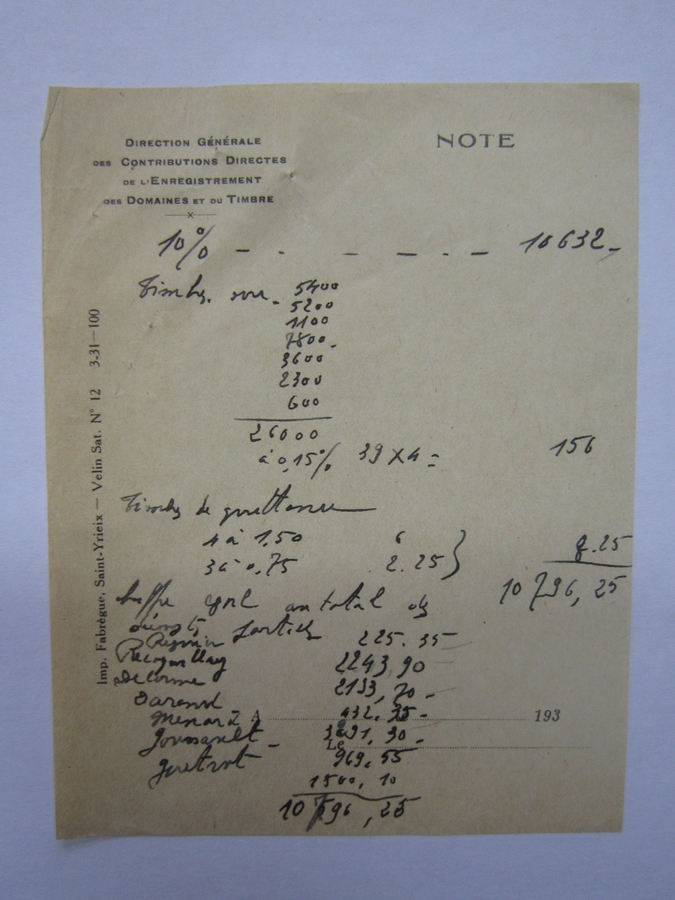 DIRECTION GÉNÉRALE
DES CONTRIBUTIONS DIRECTES
DE L'ENREGISTREMENT
DES DOMAINES ET DU TIMBRE
NOTE
10% — - — — - — 10632 -
Timbres sur - 5400
5200
1100
7800 -
3600
2300
600
26000
à 0,15% 39 X 4 = 156
Timbres de quittance
4 à 1,50 6
3 à 0,75 2.25 } 8.25
10796,25
au total
225.35
2243,90
2133,70 -
Menard A 432,35 - 193
Le 3291,30 -
969,55
1500,10
10796,25
Imp. Fabrègue, Saint-Yrieix — Velin Sat. N° 12 3-31—100